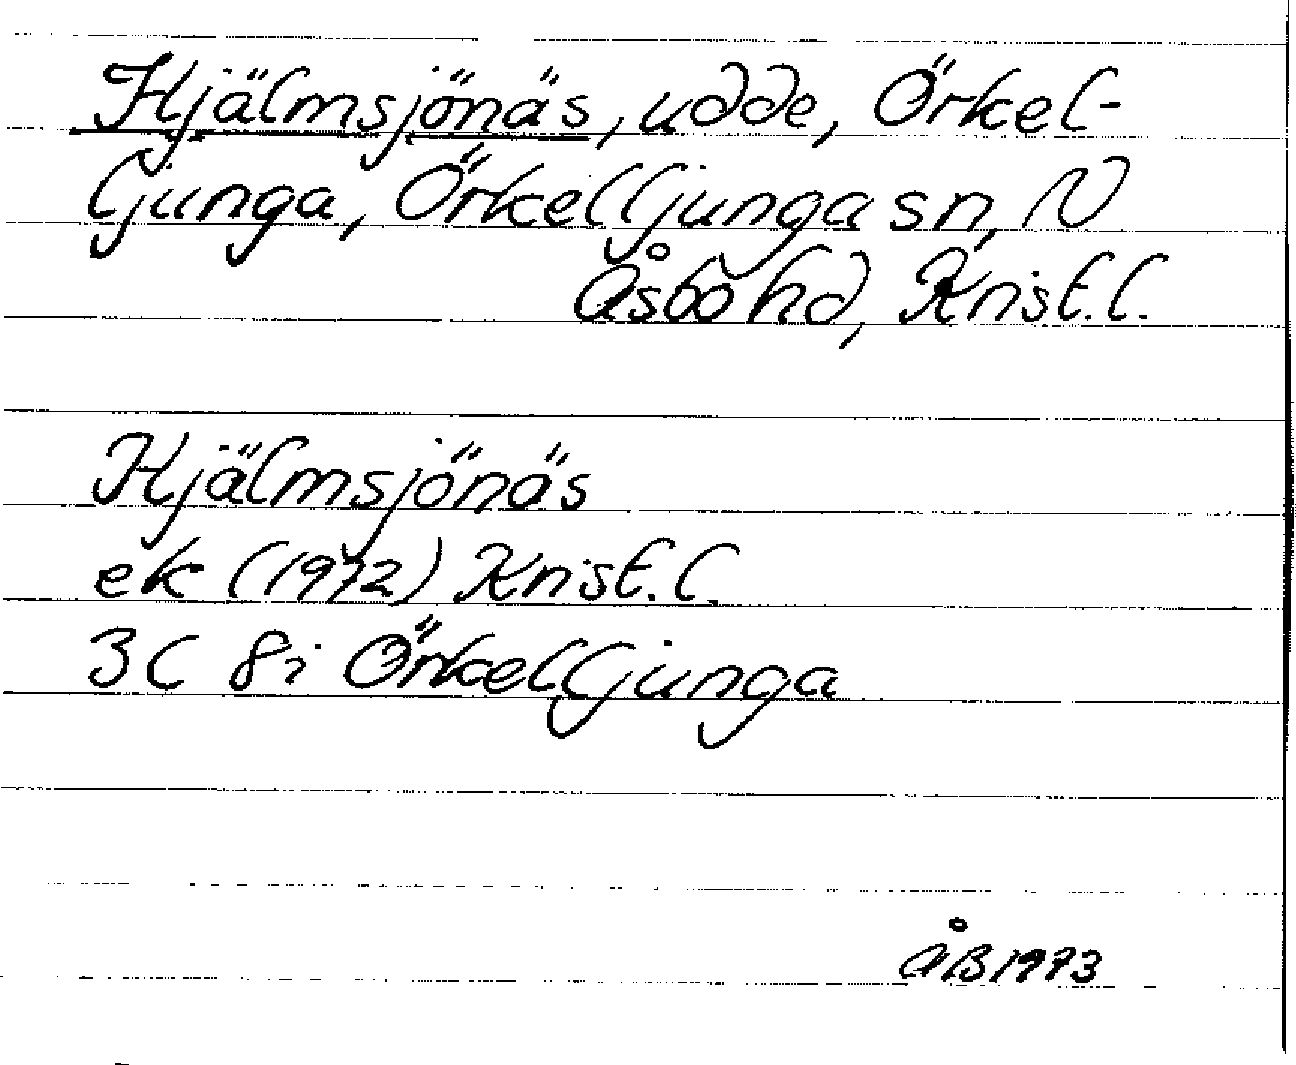 Hjälmsjönäs, udde, Örkel-
ljunga, Örkelljunga sn, N
Åsbo hd, Krist. l.
Hjälmsjönäs
ek (1972) Krist. l.
3C 8i Örkelljunga
ÅB 1973